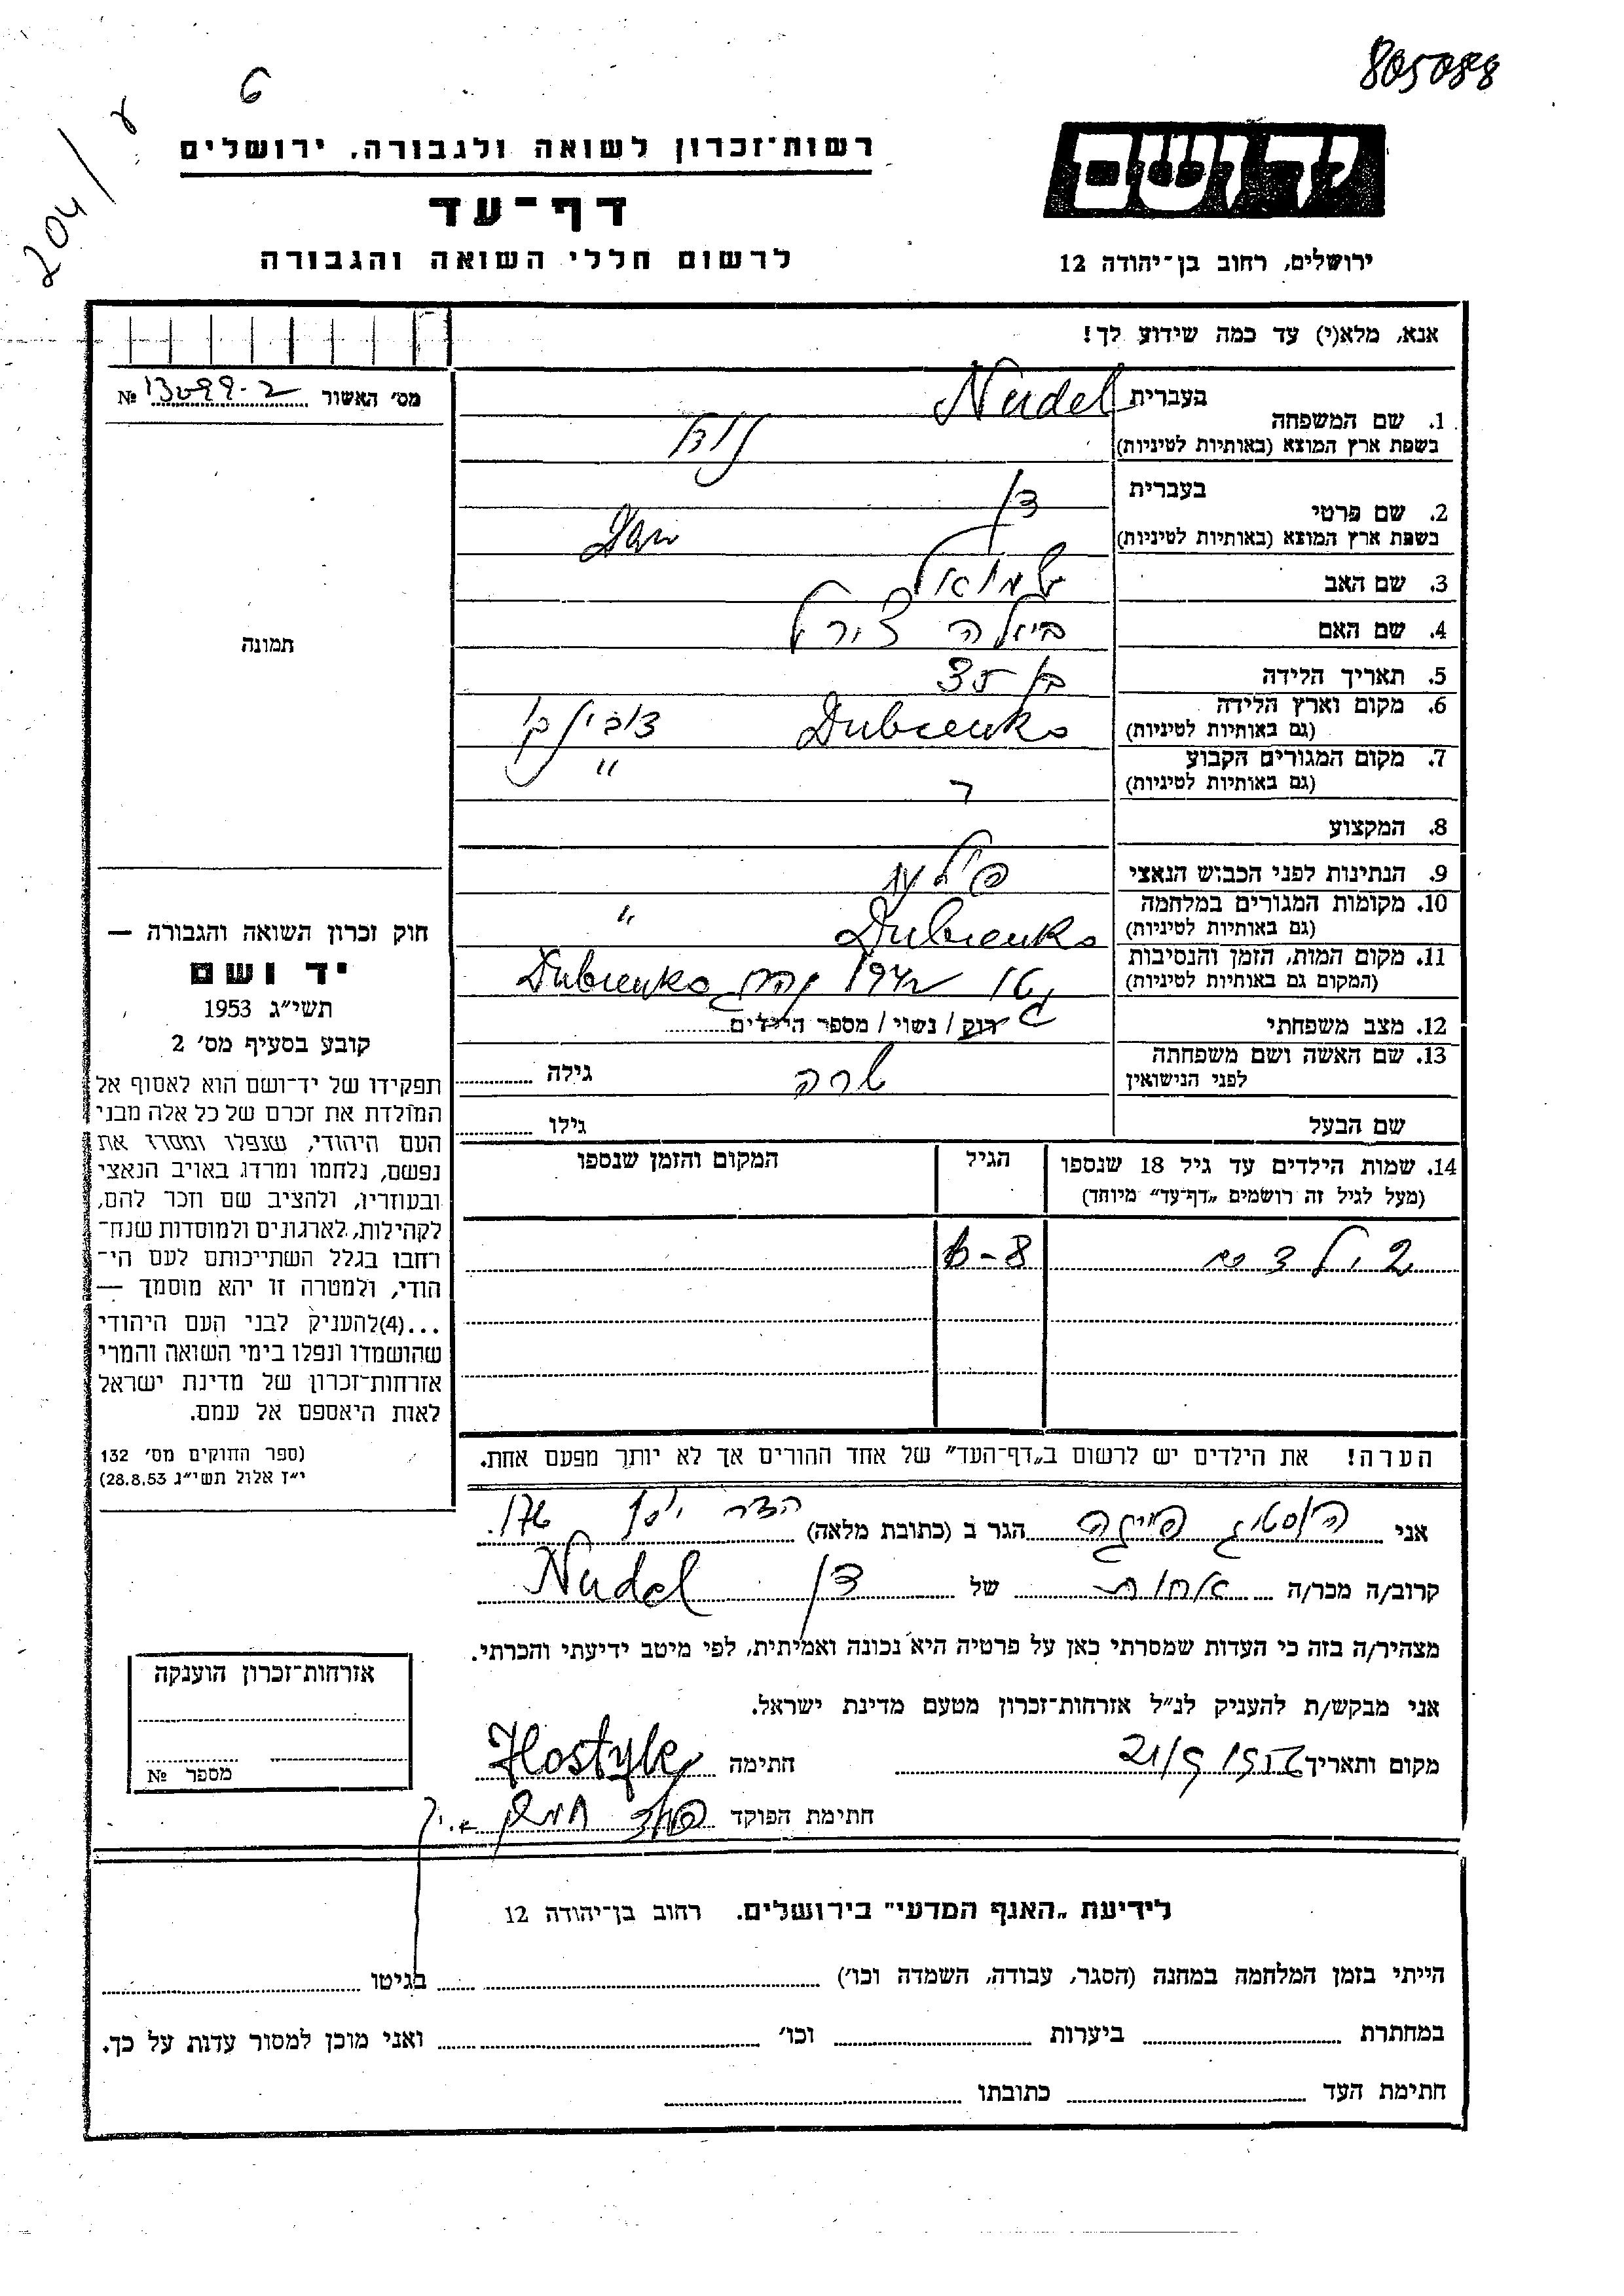 805088
204/ע
6
רשות־זכרון לשואה ולגבורה, ירושלים
דף־עד
לרשום חללי השואה והגבורה
יד ושם
ירושלים, רחוב בן־יהודה 12
אנא, מלא(י) עד כמה שידוע לך!
מס׳ האשור №
1. שם המשפחה בעברית Nudel
בשפת ארץ המוצא (באותיות לטיניות) נודל
2. שם פרטי בעברית דן
בשפת ארץ המוצא (באותיות לטיניות) Dan
3. שם האב שמואל
4. שם האם ביילה צירל
5. תאריך הלידה בן 35
6. מקום וארץ הלידה (גם באותיות לטיניות) Dubienko דובינקו
7. מקום המגורים הקבוע (גם באותיות לטיניות) "
8. המקצוע
9. הנתינות לפני הכבוש הנאצי
10. מקומות המגורים במלחמה (גם באותיות לטיניות) Dubienko "
11. מקום המות, הזמן והנסיבות (המקום גם באותיות לטיניות) Dubienko
12. מצב משפחתי רווק / נשוי / מספר הילדים
13. שם האשה ושם משפחתה לפני הנישואין שרה גילה
שם הבעל גילו
14. שמות הילדים עד גיל 18 שנספו (מעל לגיל זה רושמים „דף־עד” מיוחד) הגיל המקום והזמן שנספו
2 ילדים 8-6
הערה! את הילדים יש לרשום ב„דף־העד” של אחד ההורים אך לא יותר מפעם אחת.
תמונה
חוק זכרון השואה והגבורה —
יד ושם
תשי״ג 1953
קובע בסעיף מס׳ 2
תפקידו של יד־ושם הוא לאסוף אל
המולדת את זכרם של כל אלה מבני
העם היהודי, שנפלו ומסרו את
נפשם, נלחמו ומרדו באויב הנאצי
ובעוזריו, ולהציב שם וזכר להם,
לקהילות, לארגונים ולמוסדות שנח־
רחבו בגלל השתייכותם לעם הי־
הודי, ולמטרה זו יהא מוסמך —
...(4)להעניק לבני העם היהודי
שהושמדו ונפלו בימי השואה והמרי
אזרחות־זכרון של מדינת ישראל
לאות היאספם אל עמם.
(ספר החוקים מס׳ 132
י״ז אלול תשי״ג 28.8.53)
אני הוסטיג פייגה הגר ב (כתובת מלאה) הדר יוסף 176.
קרוב/ה מכר/ה אחות של דן Nudel
מצהיר/ה בזה כי העדות שמסרתי כאן על פרטיה היא נכונה ואמיתית, לפי מיטב ידיעתי והכרתי.
אני מבקש/ת להעניק לנ״ל אזרחות־זכרון מטעם מדינת ישראל.
מקום ותאריך 21/5 1956 חתימה
חתימת הפוקד
אזרחות־זכרון הוענקה
מספר №
לידיעת „האגף המדעי” בירושלים. רחוב בן־יהודה 12
הייתי בזמן המלחמה במחנה (הסגר, עבודה, השמדה וכו׳) בגיטו
במחתרת ביערות וכו׳ ואני מוכן למסור עדות על כך.
חתימת העד כתובתו